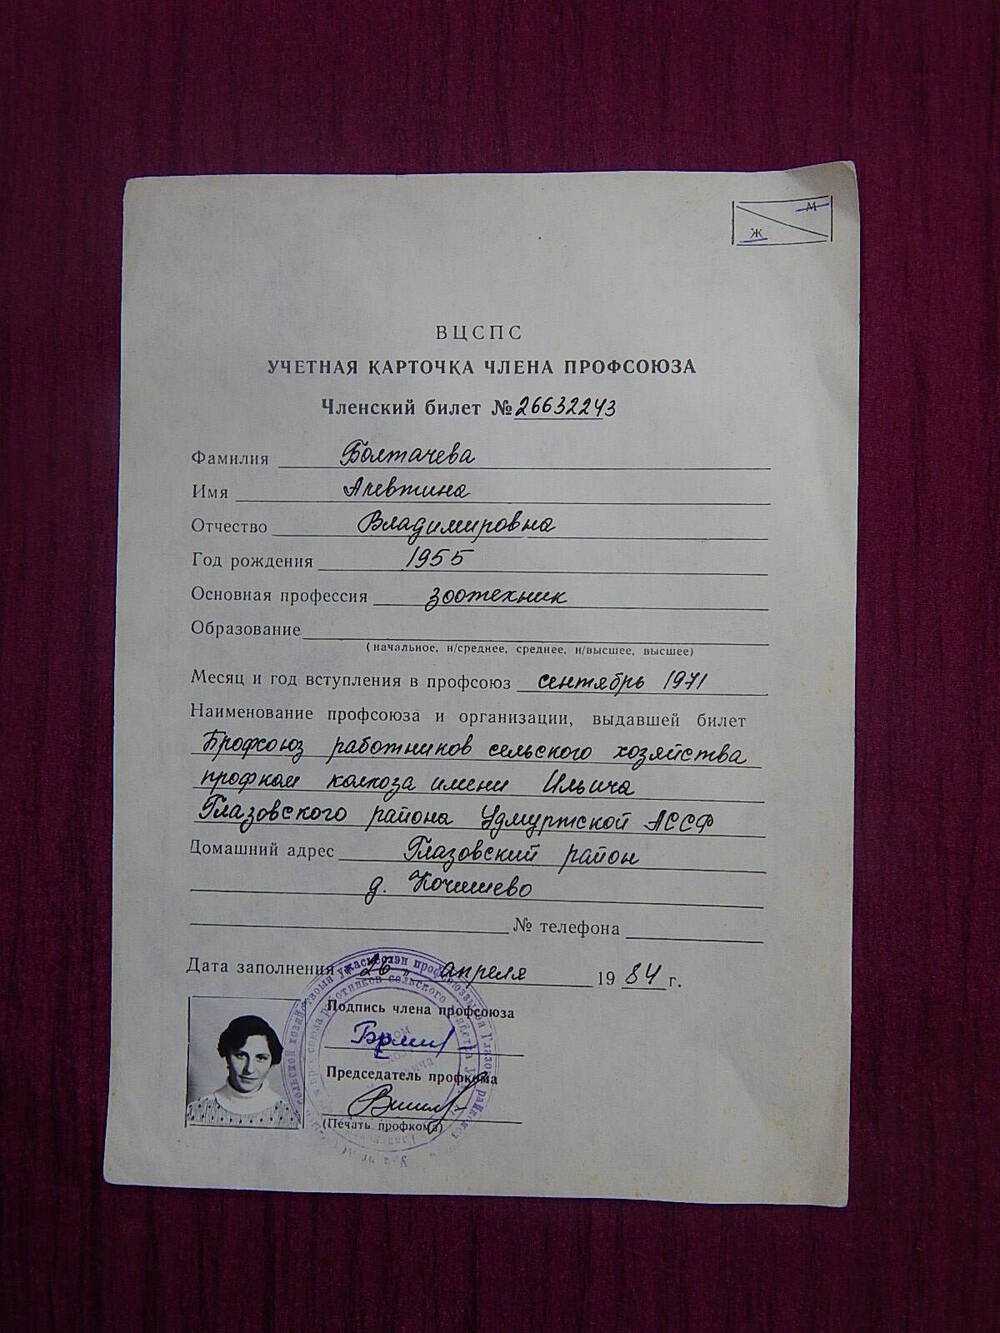 М
Ж
ВЦСПС
УЧЕТНАЯ КАРТОЧКА ЧЛЕНА ПРОФСОЮЗА
Членский билет № 26632243
Фамилия Болтачева
Имя Алевтина
Отчество Владимировна
Год рождения 1955
Основная профессия зоотехник
Образование
(начальное, н/среднее, среднее, н/высшее, высшее)
Месяц и год вступления в профсоюз сентябрь 1971
Наименование профсоюза и организации, выдавшей билет
Профсоюз работников сельского хозяйства
профком колхоза имени Ильича
Глазовского района Удмуртской АССР
Домашний адрес Глазовский район
д. Кочишево
№ телефона
Дата заполнения "26" апреля 1984 г.
Подпись члена профсоюза
Председатель профкома
(Печать профкома)